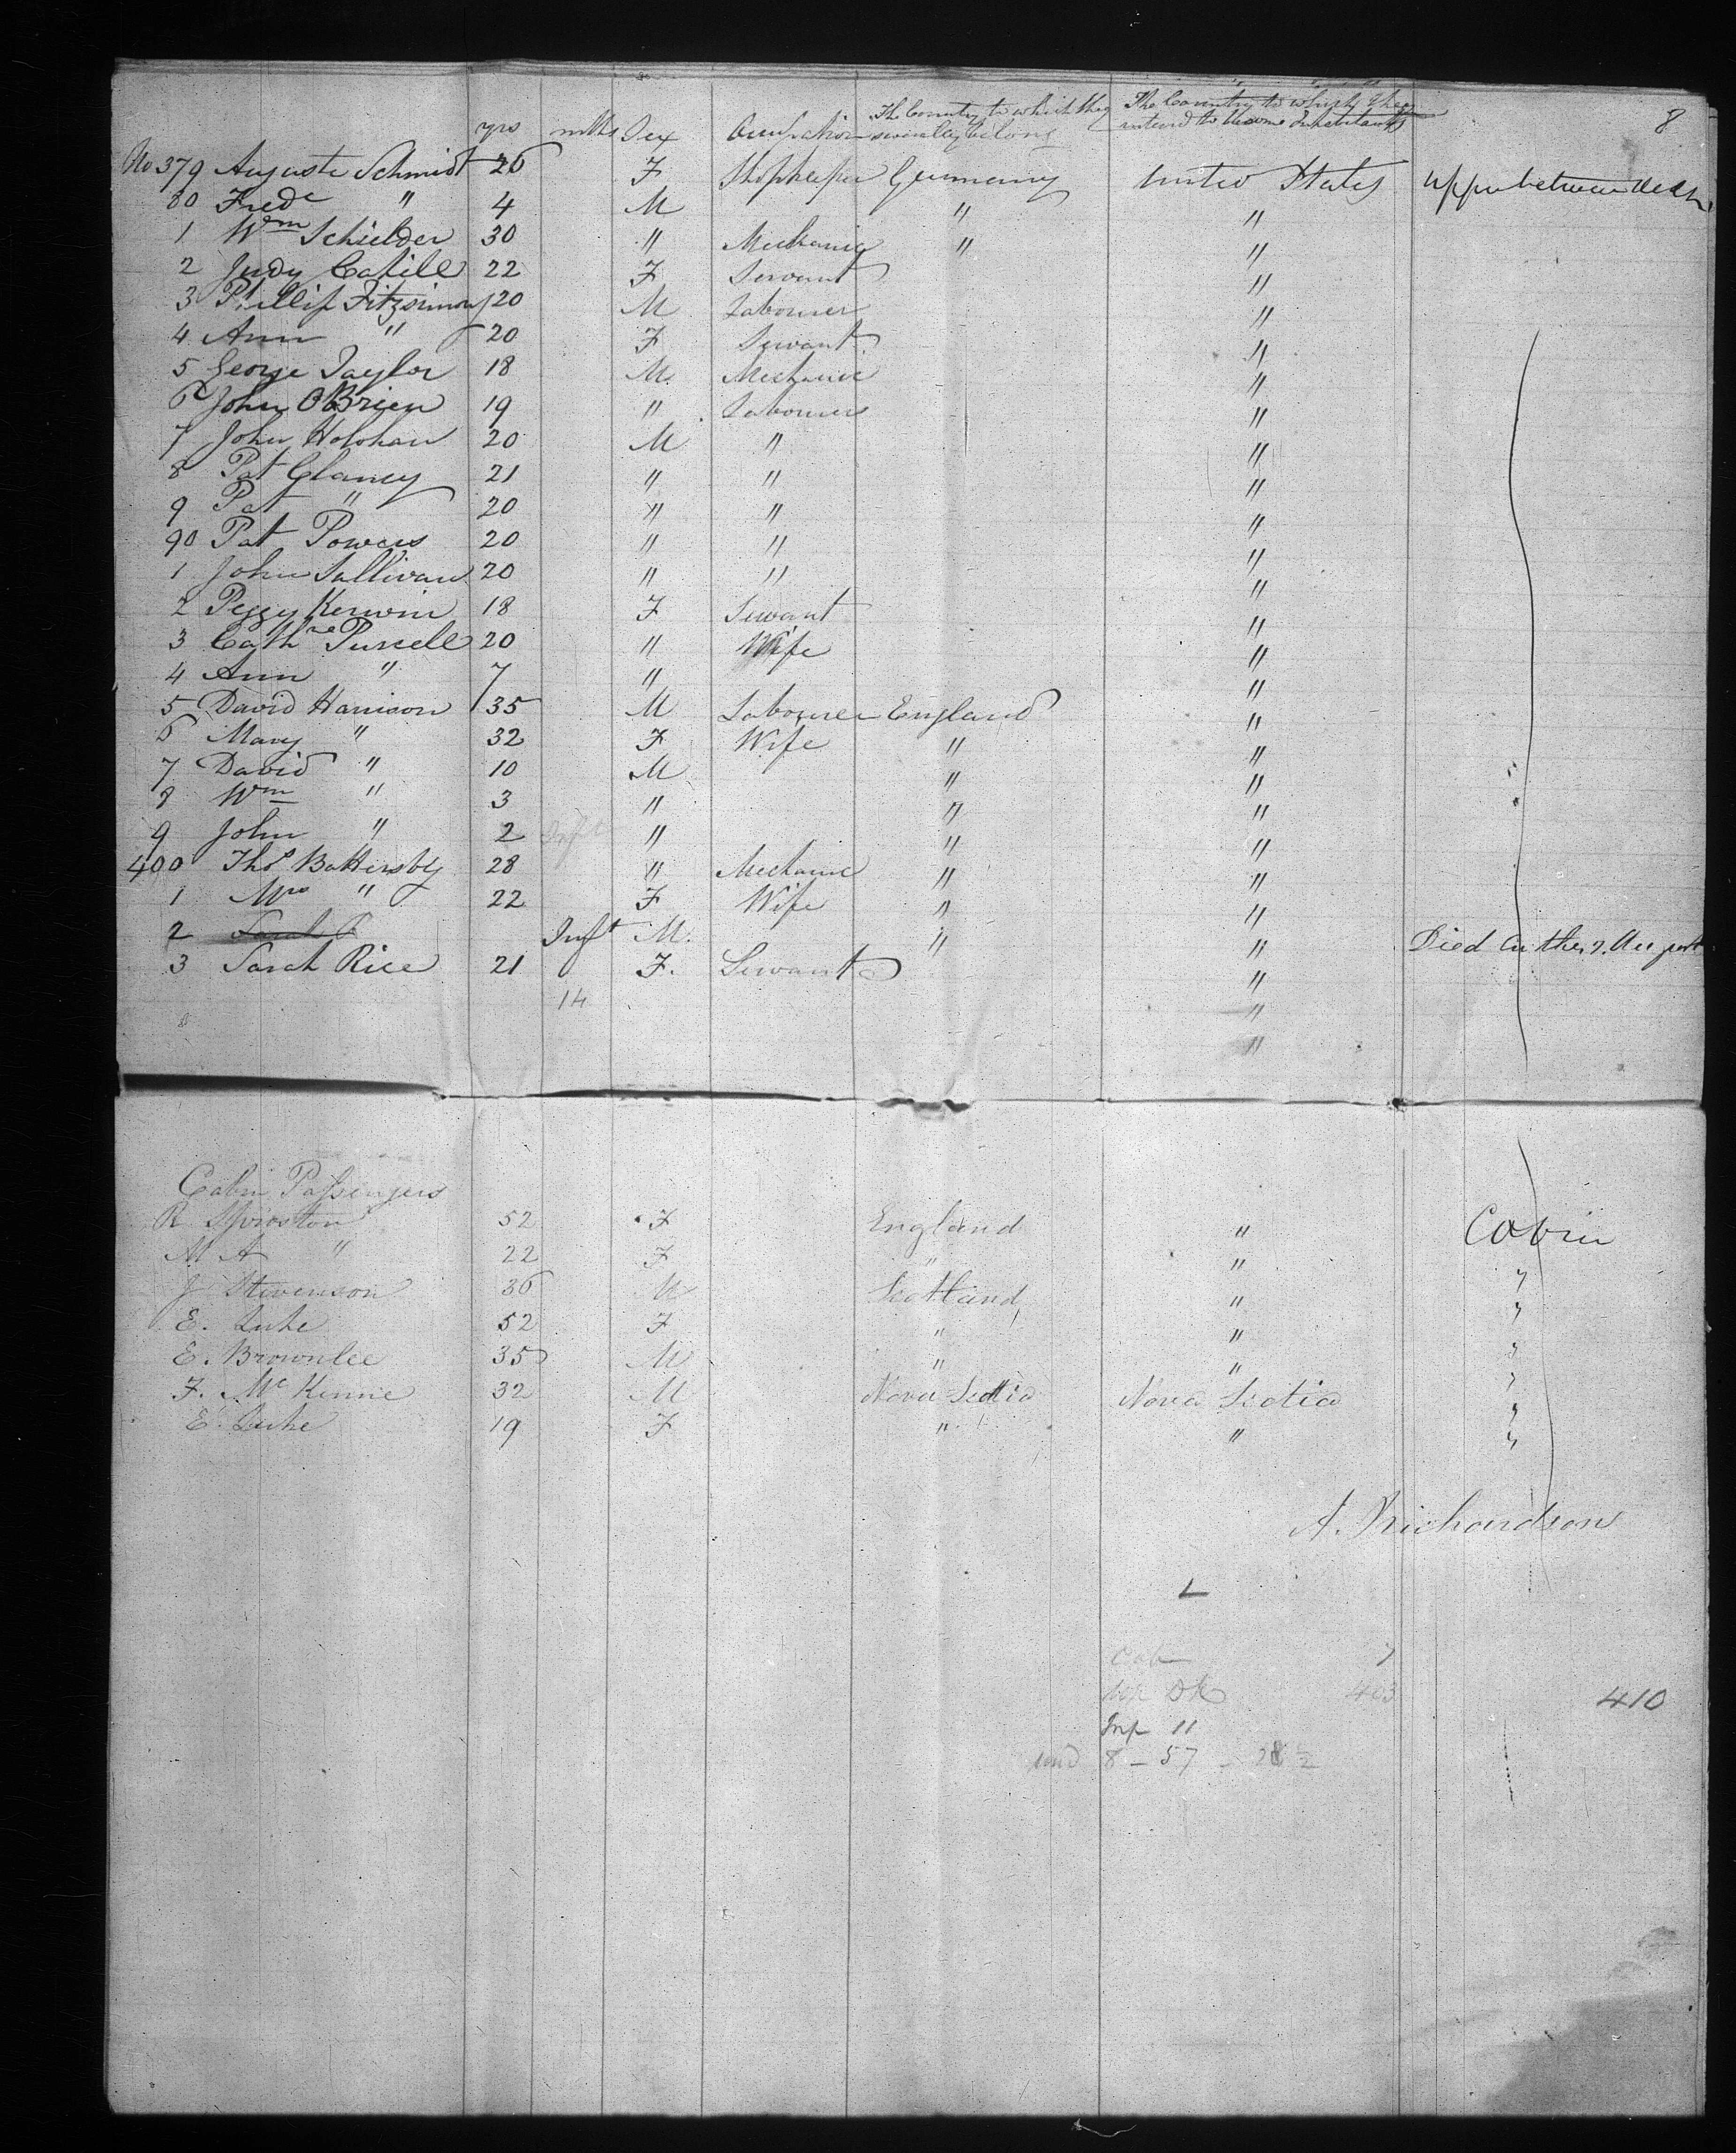 8
yrs mths Sex Occupation The Country to which they severally belong The Country to which they intend to become Inhabitants
No 379 Auguste Schmidt 26 F Shopkeeper Germany United States Upper between decks
80 Fredc " 4 M " "
1 Wm Schielder 30 " Mechanic " "
2 Judy Cahill 22 F Servant "
3 Phillip Fitzsimons 20 M Labourer "
4 Ann " 20 F Servant "
5 George Taylor 18 M. Mechanic "
6 John OBrien 19 " Labourer "
7 John Holohan 20 M " "
8 Pat Glancy 21 " " "
9 Pat " 20 " " "
90 Pat Powers 20 " " "
1 John Sullivan 20 " " "
2 Peggy Kerwin 18 F Servant "
3 Cathne Purcell 20 " Wife "
4 Ann " 7 " "
5 David Harrison 35 M Labourer England "
6 Mary " 32 F Wife " "
7 David " 10 M " "
8 Wm " 3 " " "
9 John " 2 Inft " " "
400 Thos Battersby 28 " Mechanic " "
1 Mrs " 22 F Wife " "
2 Inft M. " " Died on the 7. August
3 Sarah Rice 21 F. Servant "
14 "
"
Cabin Passengers
R Sproston 52 F England " Cabin
M A " 22 F " " "
J Stevenson 36 M Scotland " "
E. Luke 52 F " " "
E. Brownlee 35 M " " "
F. Mc Kennie 32 M Nova Scotia Nova Scotia "
E. Luke 19 F " " "
A. Richardson
Cab 7
403 410
Inf 11
und 8 - 57 - 28 1/2